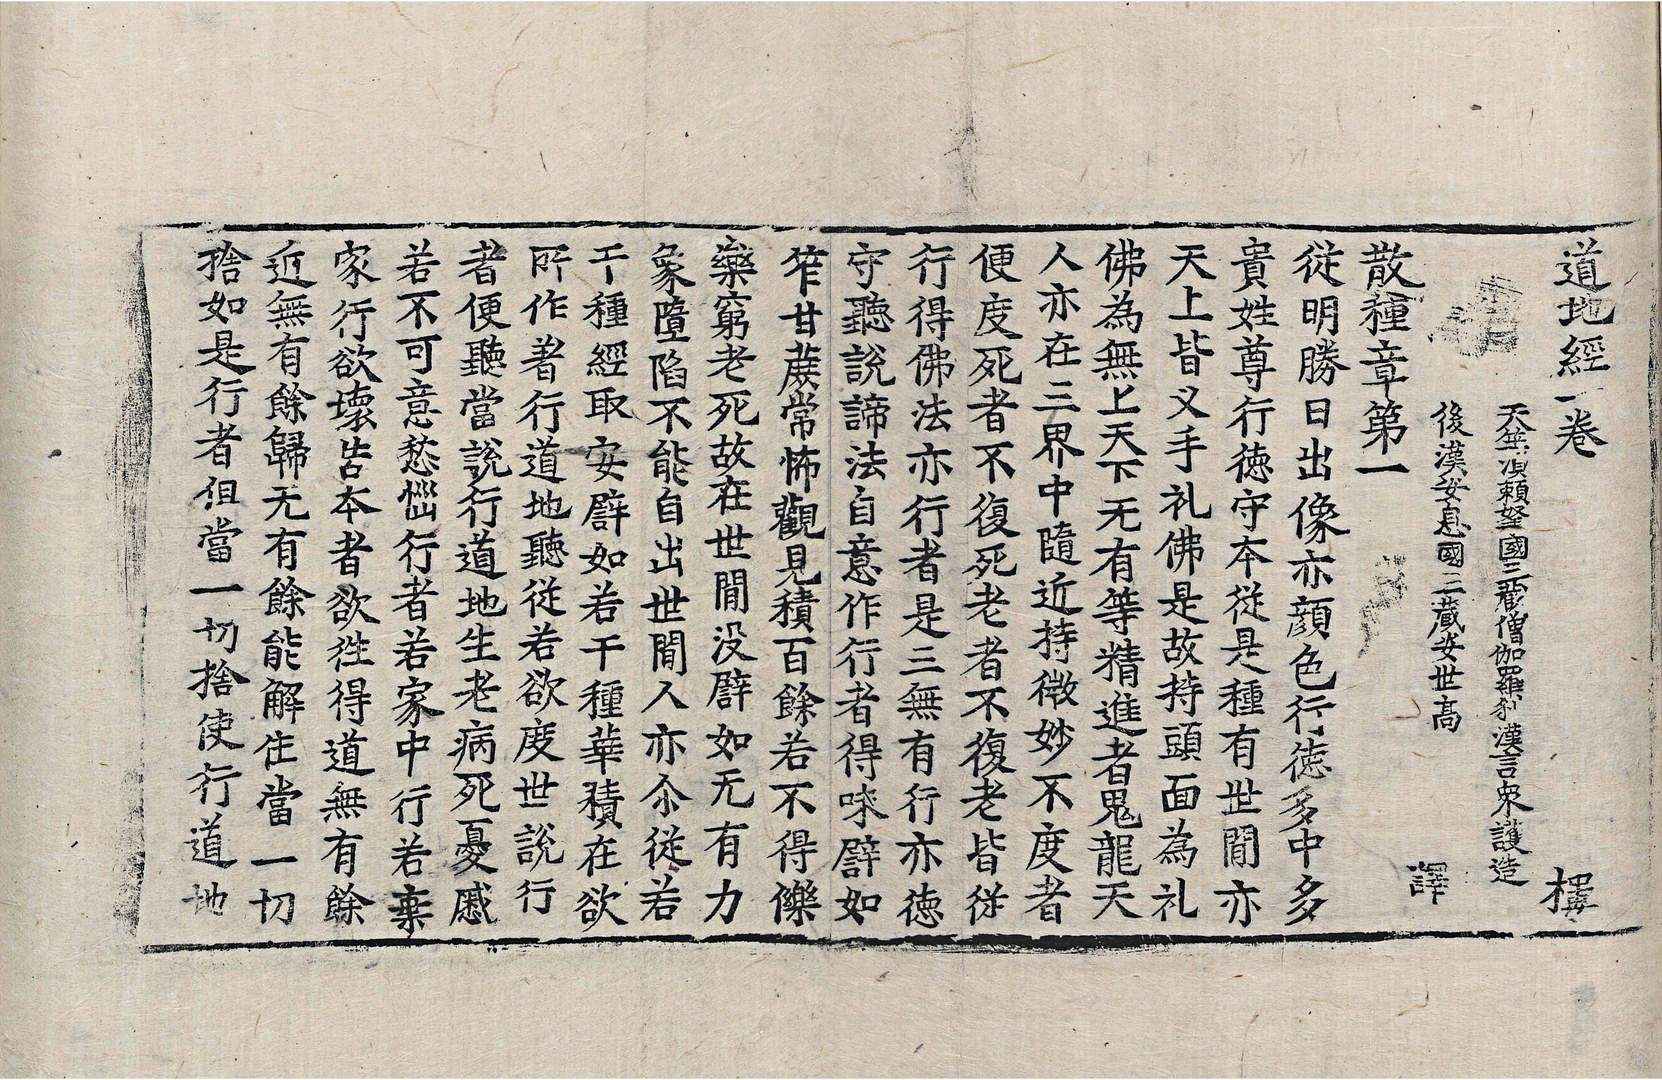 道地經一卷 樓
天竺須賴拏國三藏僧伽羅刹漢言衆護造
後漢安息國三藏安世高 譯
散種章第一
從明勝日出像亦顔色行徳多中多
貴姓尊行徳守本從是種有世間亦
天上皆叉手礼佛是故持頭面為礼
佛為無上天下无有等精進者鬼龍天
人亦在三界中隨近持微妙不度者
便度死者不復死老者不復老皆從
行得佛法亦行者是三無有行亦徳
守聽說諦法自意作行者得味譬如
笮甘蔗常怖觀見積百餘若不得
藥窮老死故在世間没譬如无有力
象墮陷不能自出世間人亦尒從若
干種經取安譬如若干種華積在欲
所作著行道地聽從若欲度世說行
者便聽當說行道地生老病死憂慼
若不可意愁惱行者若家中行若棄
家行欲壞苦本者欲徃得道無有餘
近無有餘歸无有餘能解住當一切
捨如是行者但當一切捨使行道地